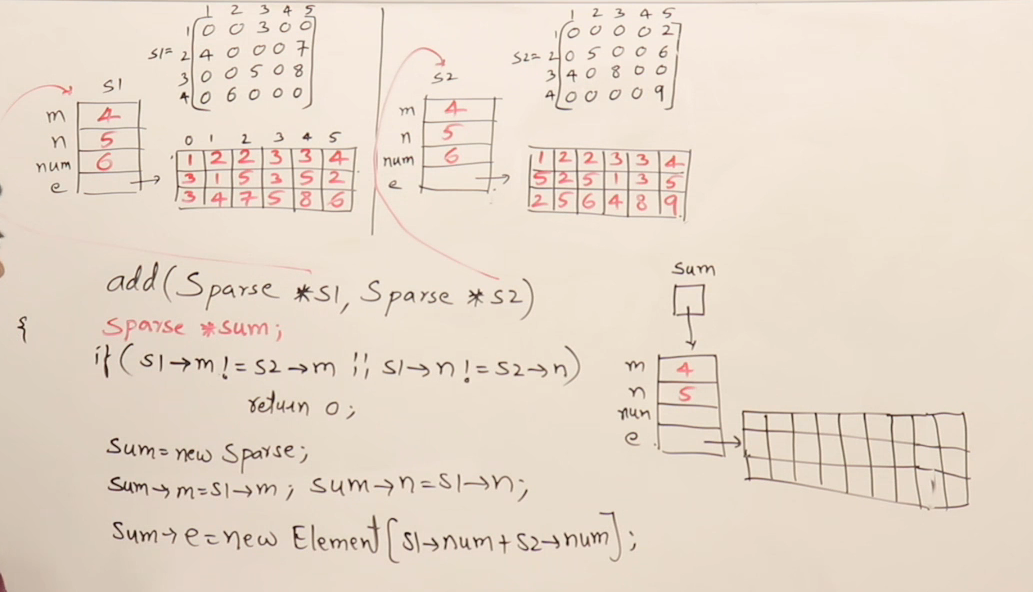 1 2 3 4 5
S1=
1 0 0 3 0 0
2 4 0 0 0 7
3 0 0 5 0 8
4 0 6 0 0 0
S1
m 4
n 5
num 6
e
0 1 2 3 4 5
1 2 2 3 3 4
3 1 5 3 5 2
3 4 7 5 8 6
1 2 3 4 5
S2=
1 0 0 0 0 2
2 0 5 0 0 6
3 4 0 8 0 0
4 0 0 0 0 9
S2
m 4
n 5
num 6
e
1 2 2 3 3 4
5 2 5 1 3 5
2 5 6 4 8 9
add(Sparse *S1, Sparse *S2)
{ Sparse *sum;
if(S1→m != S2→m || S1→n != S2→n)
return 0;
Sum=new Sparse;
Sum→m=S1→m; Sum→n=S1→n;
Sum→e=new Element[S1→num+S2→num];
Sum
m 4
n 5
num
e